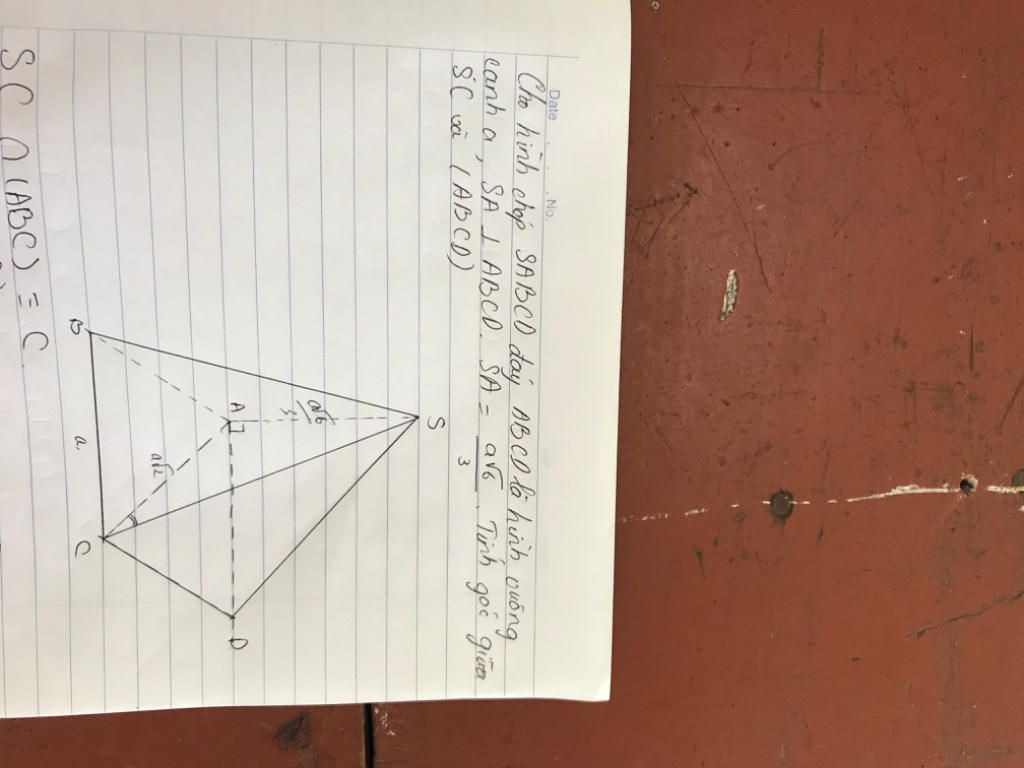 Date . . . No.
Cho hình chóp SABCD đáy ABCD là hình vuông
cạnh a, SA ⊥ ABCD. SA = a√6/3. Tính góc giữa
SC và (ABCD)
S
a√6/3
A
D
B
a√2
a
C
SC ∩ (ABC) ≡ C